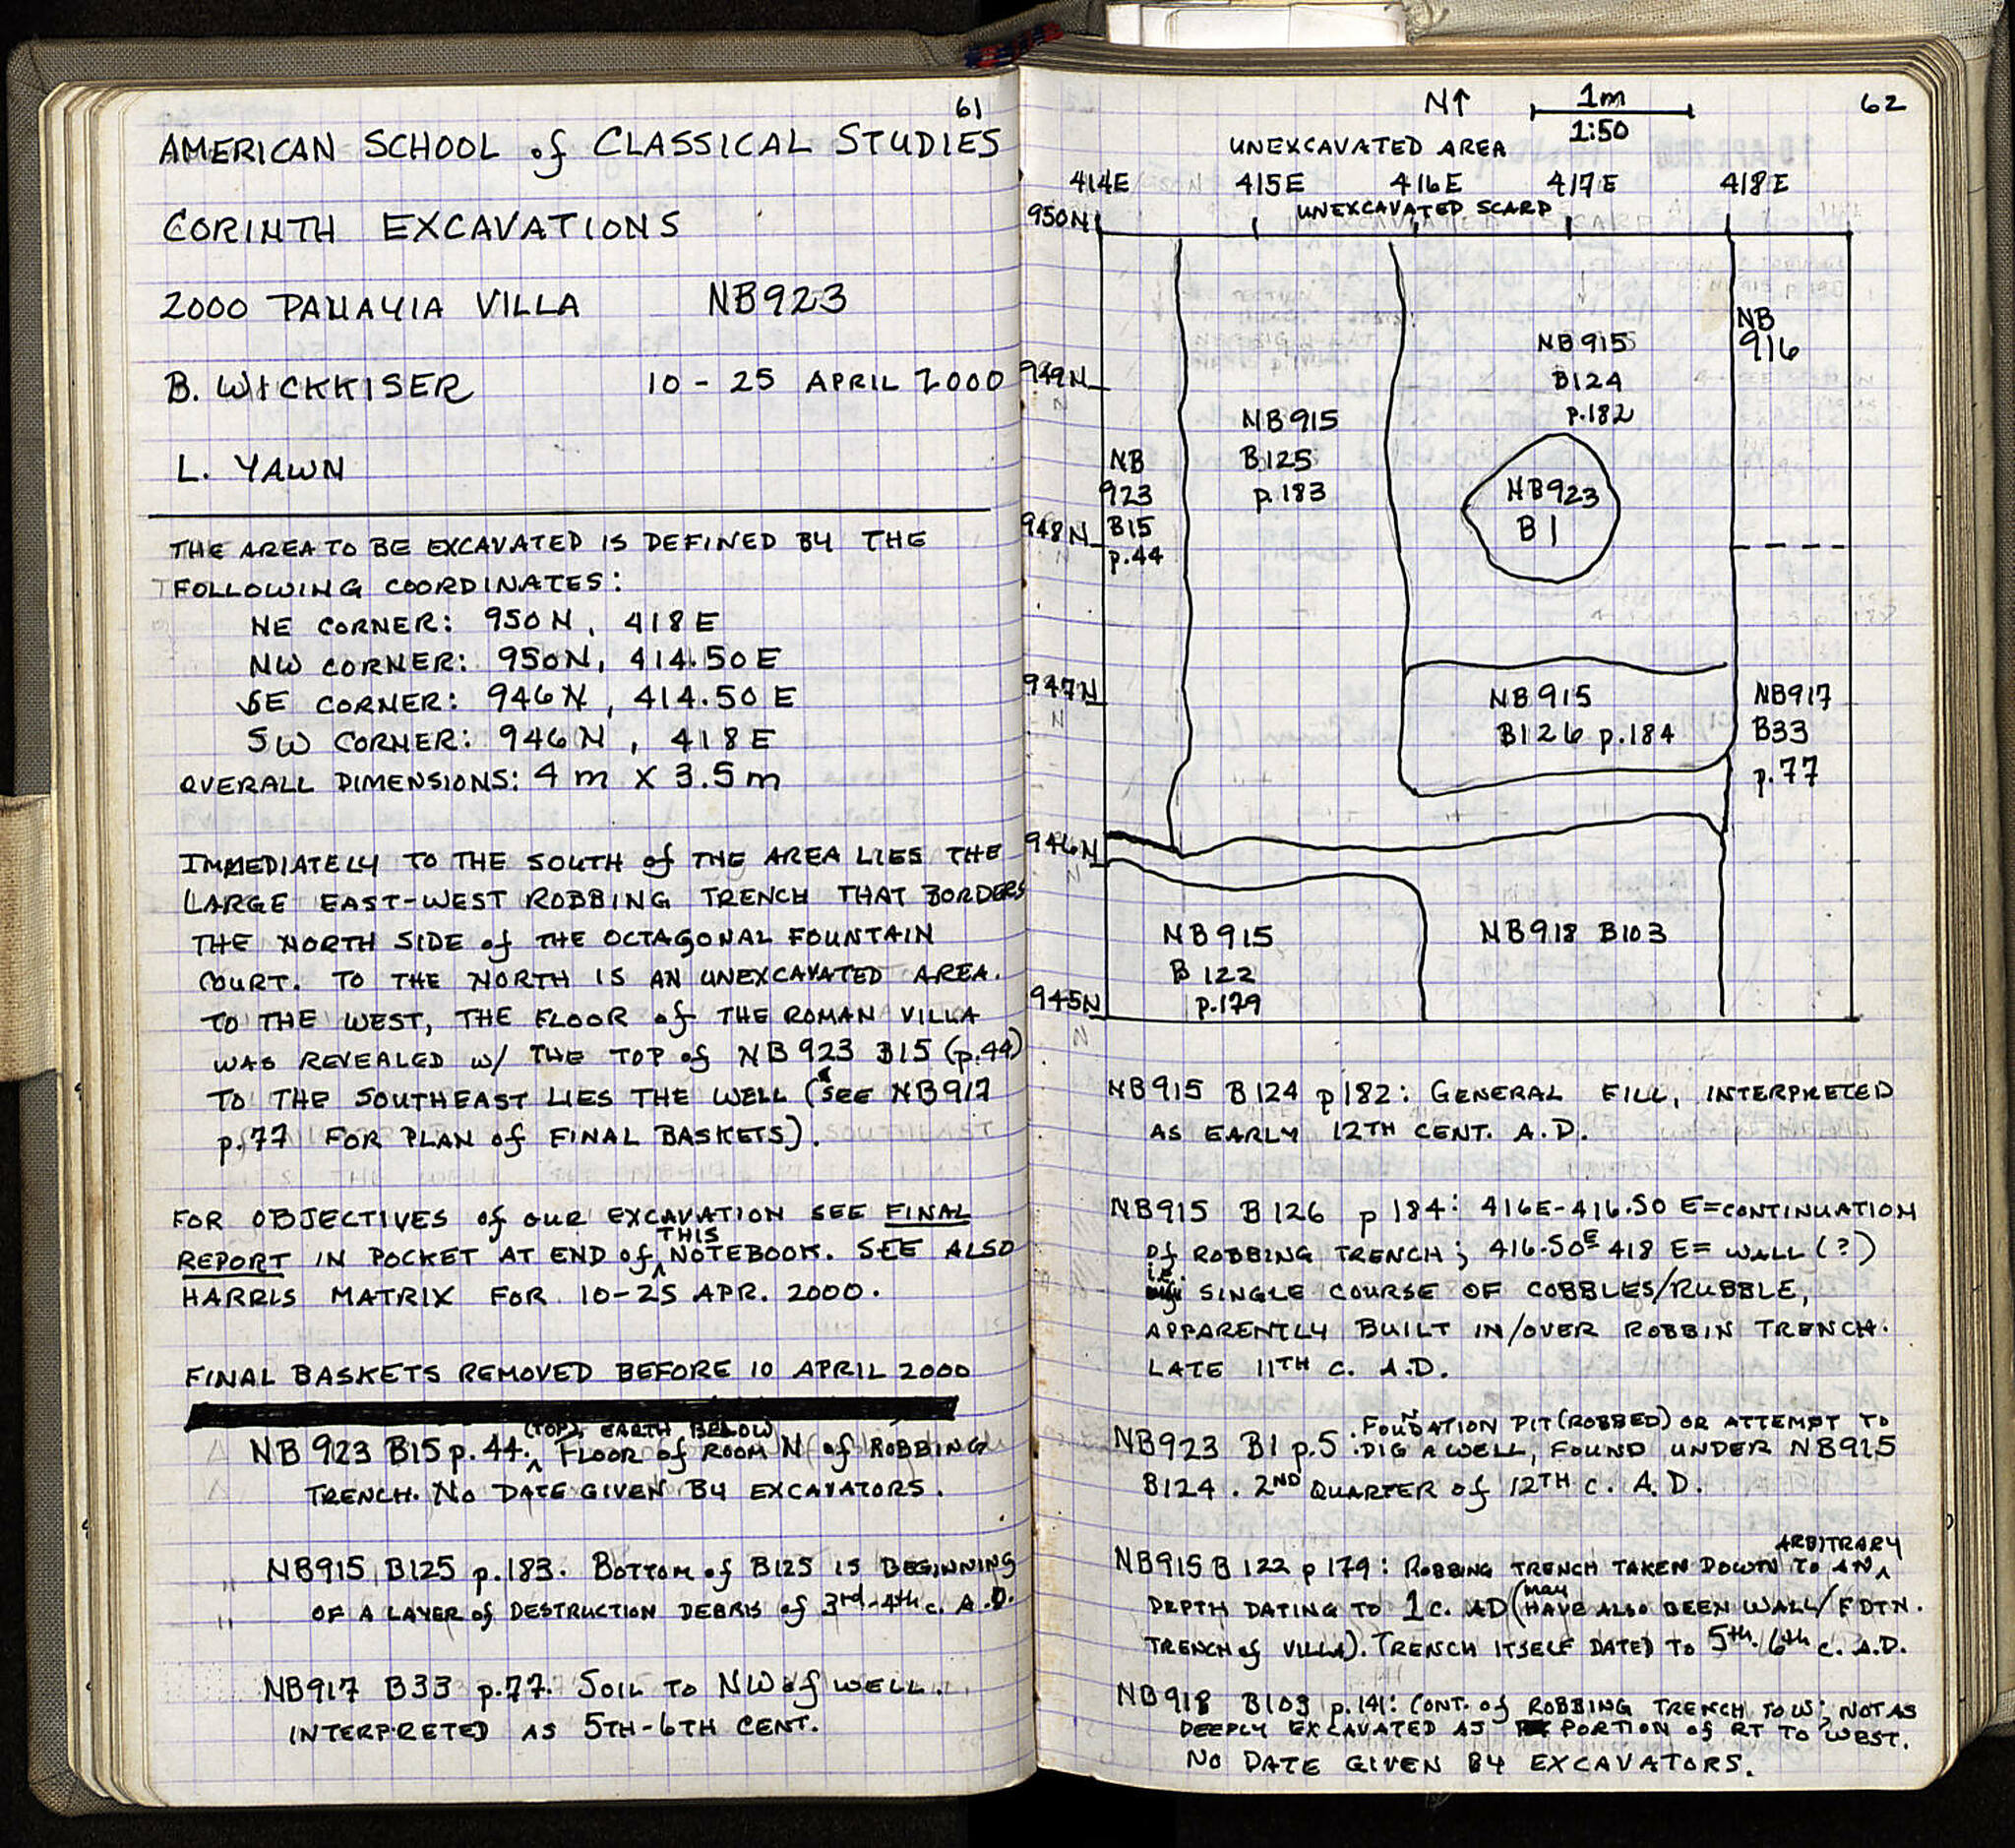 61
AMERICAN SCHOOL of CLASSICAL STUDIES
CORINTH EXCAVATIONS
2000 PANAYIA VILLA NB923
B. WICKKISER 10 - 25 APRIL 2000
L. YAWN
THE AREA TO BE EXCAVATED IS DEFINED BY THE
FOLLOWING COORDINATES:
NE CORNER: 950N, 418E
NW CORNER: 950N, 414.50E
SE CORNER: 946N, 414.50E
SW CORNER: 946N, 418E
OVERALL DIMENSIONS: 4 m X 3.5m
IMMEDIATELY TO THE SOUTH of THE AREA LIES THE
LARGE EAST-WEST ROBBING TRENCH THAT BORDERS
THE NORTH SIDE of THE OCTAGONAL FOUNTAIN
COURT. TO THE NORTH IS AN UNEXCAVATED AREA.
TO THE WEST, THE FLOOR of THE ROMAN VILLA
WAS REVEALED w/ THE TOP of NB923 B15 (p.44)
TO THE SOUTHEAST LIES THE WELL (SEE NB917
p.77 FOR PLAN of FINAL BASKETS).
FOR OBJECTIVES of OUR EXCAVATION SEE FINAL
REPORT IN POCKET AT END of THIS NOTEBOOK. SEE ALSO
HARRIS MATRIX FOR 10-25 APR. 2000.
FINAL BASKETS REMOVED BEFORE 10 APRIL 2000
NB 923 B15 p.44. (TOP), EARTH BELOW FLOOR of ROOM N of ROBBING
TRENCH. NO DATE GIVEN BY EXCAVATORS.
NB915 B125 p.183. BOTTOM of B125 IS BEGINNING
OF A LAYER of DESTRUCTION DEBRIS of 3rd-4th c. A.D.
NB917 B33 p.77. SOIL TO NW of WELL.
INTERPRETED AS 5TH-6TH CENT.
62
N↑ 1m
1:50
UNEXCAVATED AREA
414E 415E 416E 417E 418E
UNEXCAVATED SCARP
950N
949N
948N
947N
946N
945N
NB
923
B15
p.44
NB915
B125
p.183
NB915
B124
p.182
NB923
B1
NB
916
NB915
B126 p.184
NB917
B33
p.77
NB915
B 122
p.179
NB918 B103
NB915 B124 p182: GENERAL FILL, INTERPRETED
AS EARLY 12TH CENT. A.D.
NB915 B126 p 184: 416E-416.50 E=CONTINUATION
of ROBBING TRENCH; 416.50E 418 E= WALL (?)
i.e. SINGLE COURSE OF COBBLES/RUBBLE,
APPARENTLY BUILT IN/OVER ROBBIN TRENCH.
LATE 11TH C. A.D.
NB923 B1 p.5. FOUNDATION PIT (ROBBED) OR ATTEMPT TO
DIG A WELL, FOUND UNDER NB915
B124. 2ND QUARTER of 12TH C. A.D.
NB915 B 122 p 179: ROBBING TRENCH TAKEN DOWN TO AN ARBITRARY
DEPTH DATING TO 1 C. AD (MAY HAVE ALSO BEEN WALL/FDTN.
TRENCH of VILLA). TRENCH ITSELF DATED TO 5th-6th c. A.D.
NB918 B103 p.141: CONT. of ROBBING TRENCH TO W; NOT AS
DEEPLY EXCAVATED AS PORTION of RT TO WEST.
NO DATE GIVEN BY EXCAVATORS.